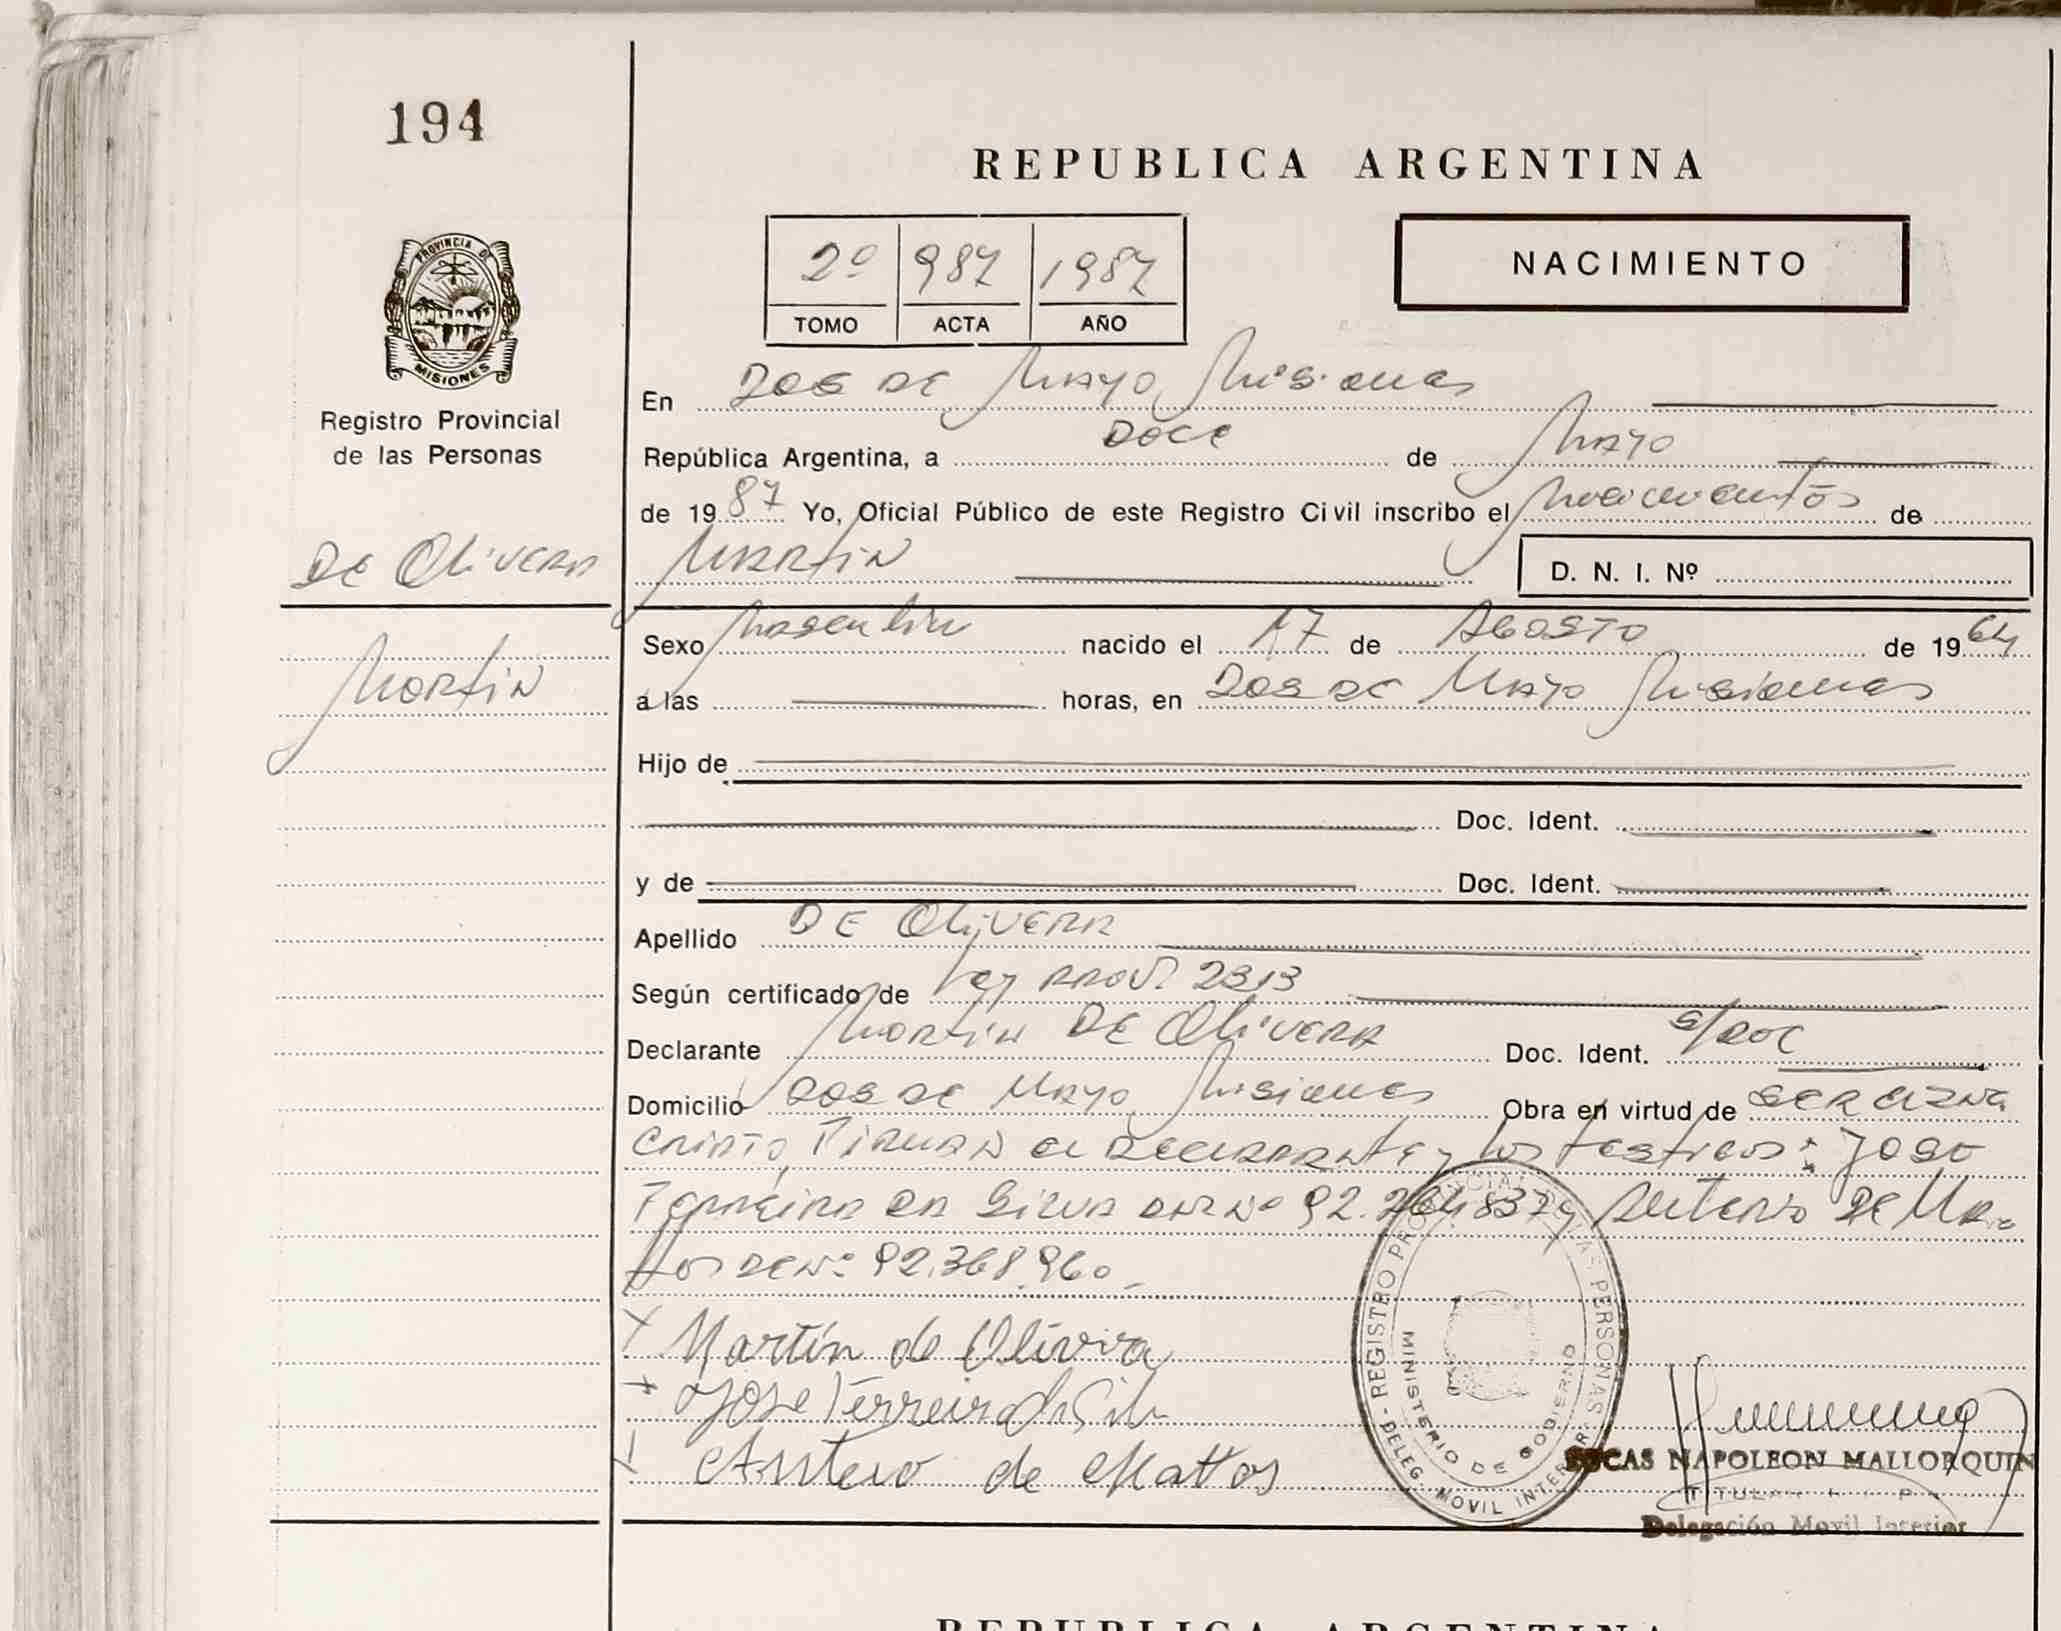 194
REPUBLICA ARGENTINA
2º 987 1987
TOMO ACTA AÑO
NACIMIENTO
PROVINCIA DE MISIONES
Registro Provincial
de las Personas
En Dos de Mayo Misiones
República Argentina, a Doce de Mayo
de 1987 Yo, Oficial Público de este Registro Civil inscribo el de
De Olivera
Martin D. N. I. Nº
Martin
Sexo Masculino nacido el 17 de Agosto de 1964
a las horas, en Dos de Mayo Misiones
Hijo de
Doc. Ident.
y de Doc. Ident.
Apellido De Olivera
Según certificado de Ley Prov. 2313
Declarante Martin De Olivera Doc. Ident. s/Doc
Domicilio Dos de Mayo Misiones Obra en virtud de
Firman el declarante y los testigos: Jose
Ferreira Da Silva DNI Nº y Antero De Ma
ttos 92.368.960
x Martín de Olivira
x Jose Ferreira da Silva
x Antero de Mattos
REGISTRO PROVINCIAL DE LAS PERSONAS - DELEG. MOVIL INTERIOR -
MINISTERIO DE GOBIERNO
LUCAS NAPOLEON MALLORQUIN
TITULAR
Delegación Movil Interior
REPUBLICA ARGENTINA